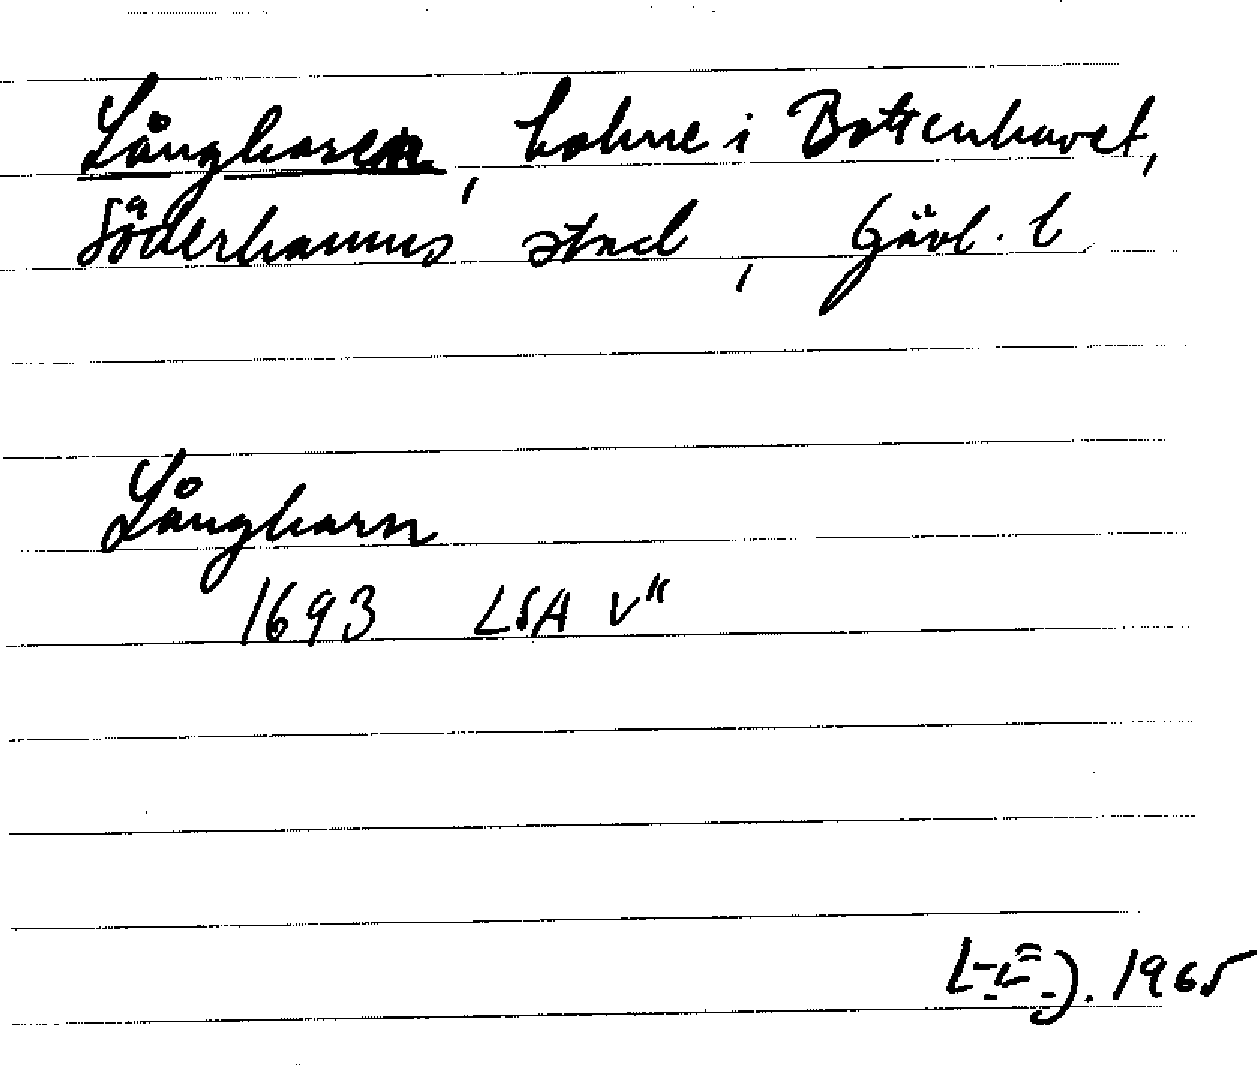 Långharen, holme i Bottenhavet,
Söderhamns stad, Gävl. l
Långharn
1693 LSA V"
1965